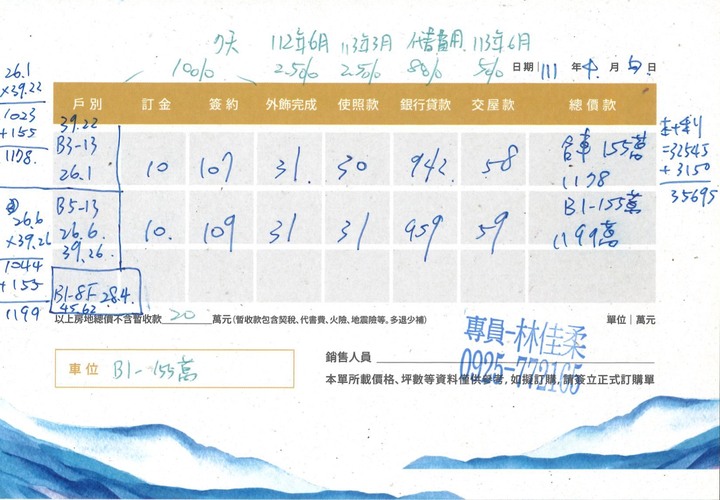 7天 112年6月 113年3月 代書費用 113年6月
10% 2.5% 2.5% 80% 5% 日期 111 年 4 月 5 日
戶別 訂金 簽約 外飾完成 使照款 銀行貸款 交屋款 總價款
39.22
B3-13
26.1
10 107 31 30 942 58
含車155萬
1178
B5-13
26.6
39.26
10 109 31 31 959 59
B1-155萬
1199萬
B1-8F 28.4
45.62
以上房地總價不含暫收款 20 萬元(暫收款包含契稅、代書費、火險、地震險等。多退少補)
單位｜萬元
車位 B1-155萬
銷售人員
專員-林佳柔
0925-772165
本單所載價格、坪數等資料僅供參考，如擬訂購，請簽立正式訂購單
26.1
×39.22
1023
+155
1178.
26.6
×39.26
1044
+155
1199
本+利
=32545
+3150
35695